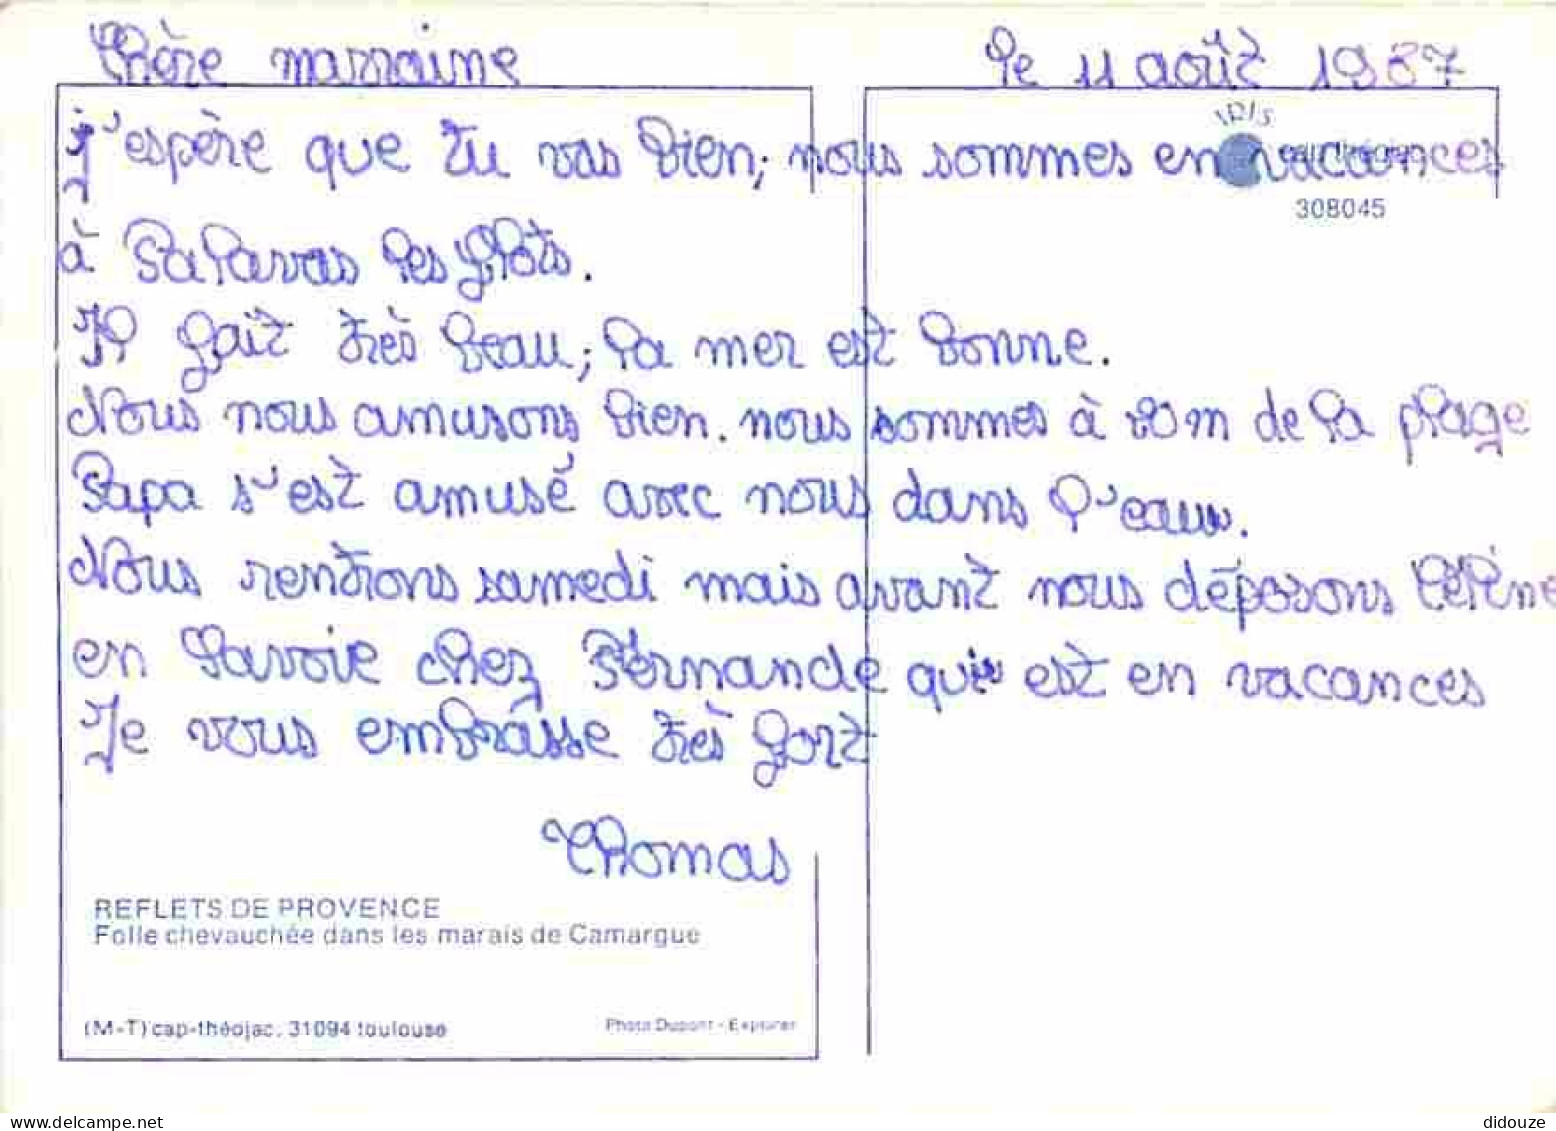 Chère marraine le 11 août 1987
j'espère que tu vas bien; nous sommes en vacances
IRIS
308045
à Palavas les flots.
Il fait très beau; la mer est bonne.
Nous nous amusons bien. nous sommes à 20 m de la plage
Papa s'est amusé avec nous dans l'eau.
Nous rentrons samedi mais avant nous déposons Céline
en Savoie chez Fernande qui est en vacances
Je vous embrasse très fort
Thomas
REFLETS DE PROVENCE
Folle chevauchée dans les marais de Camargue
(M-T) cap-théojac. 31094 toulouse
Photo Dupont - Explorer
delcampe.net
didouze